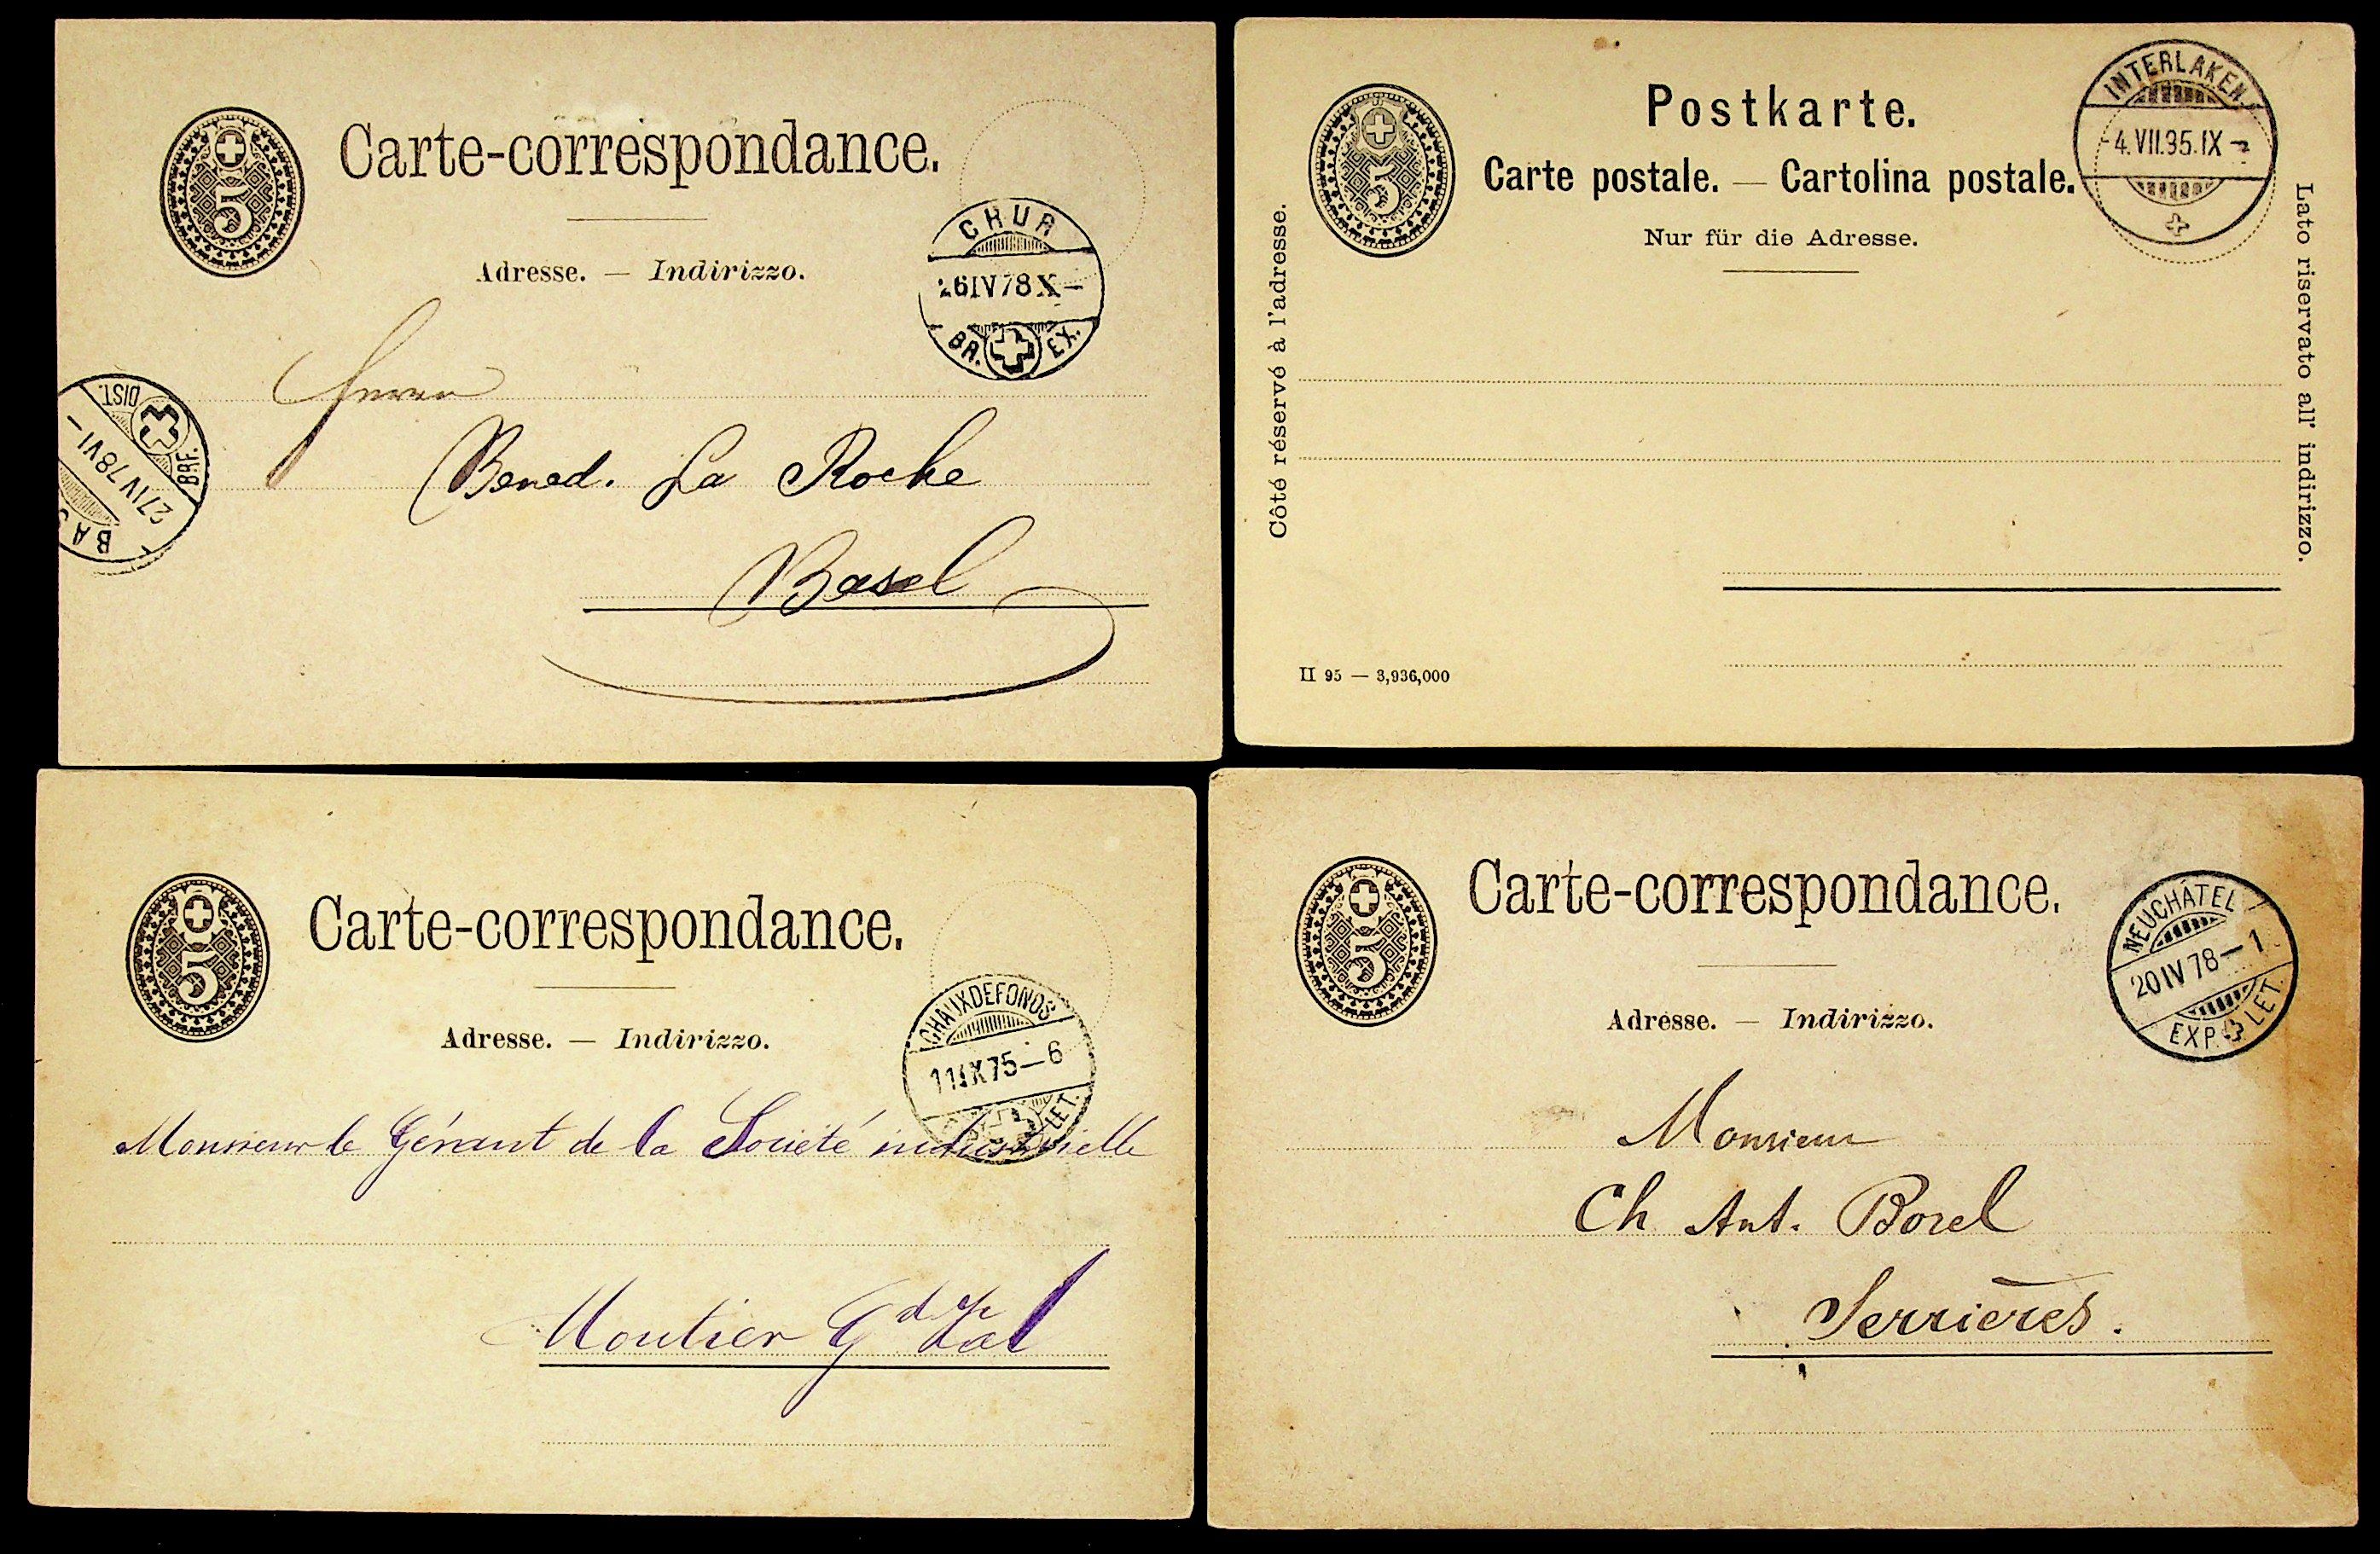 5
Carte-correspondance.
Adresse. — Indirizzo.
CHUR
26IV78X–
BR. EX.
Herrn
Bened. La Roche
Basel
BRF. DIST.
27IV78VI–
BAS
5
Postkarte.
Carte postale. — Cartolina postale.
Nur für die Adresse.
INTERLAKEN
-4.VII.95.IX-
Côté réservé à l'adresse.
Lato riservato all' indirizzo.
II 95 — 3,936,000
5
Carte-correspondance.
Adresse. — Indirizzo.
CHAUXDEFONDS
11IX75–6
LET.
Monsieur le Gérant de la Société industrielle
Moutier Gd Val
5
Carte-correspondance.
Adresse. — Indirizzo.
NEUCHATEL
20IV78–1
EXP. LET.
Monsieur
Ch Ant. Borel
Serrières.